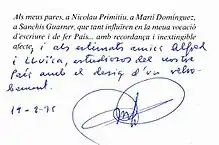 Als meus pares, a Nicolau Primitiu, a Martí Domínguez,
a Sanchis Guarner, que tant influïren en la meua vocació
d'escriure i de fer País... amb recordança i inextingible
afecte, i als estimats amics Alfred
i Lluïsa, estudiosos del nostre
País amb el desig d'un retro-
bament.
19-2-75